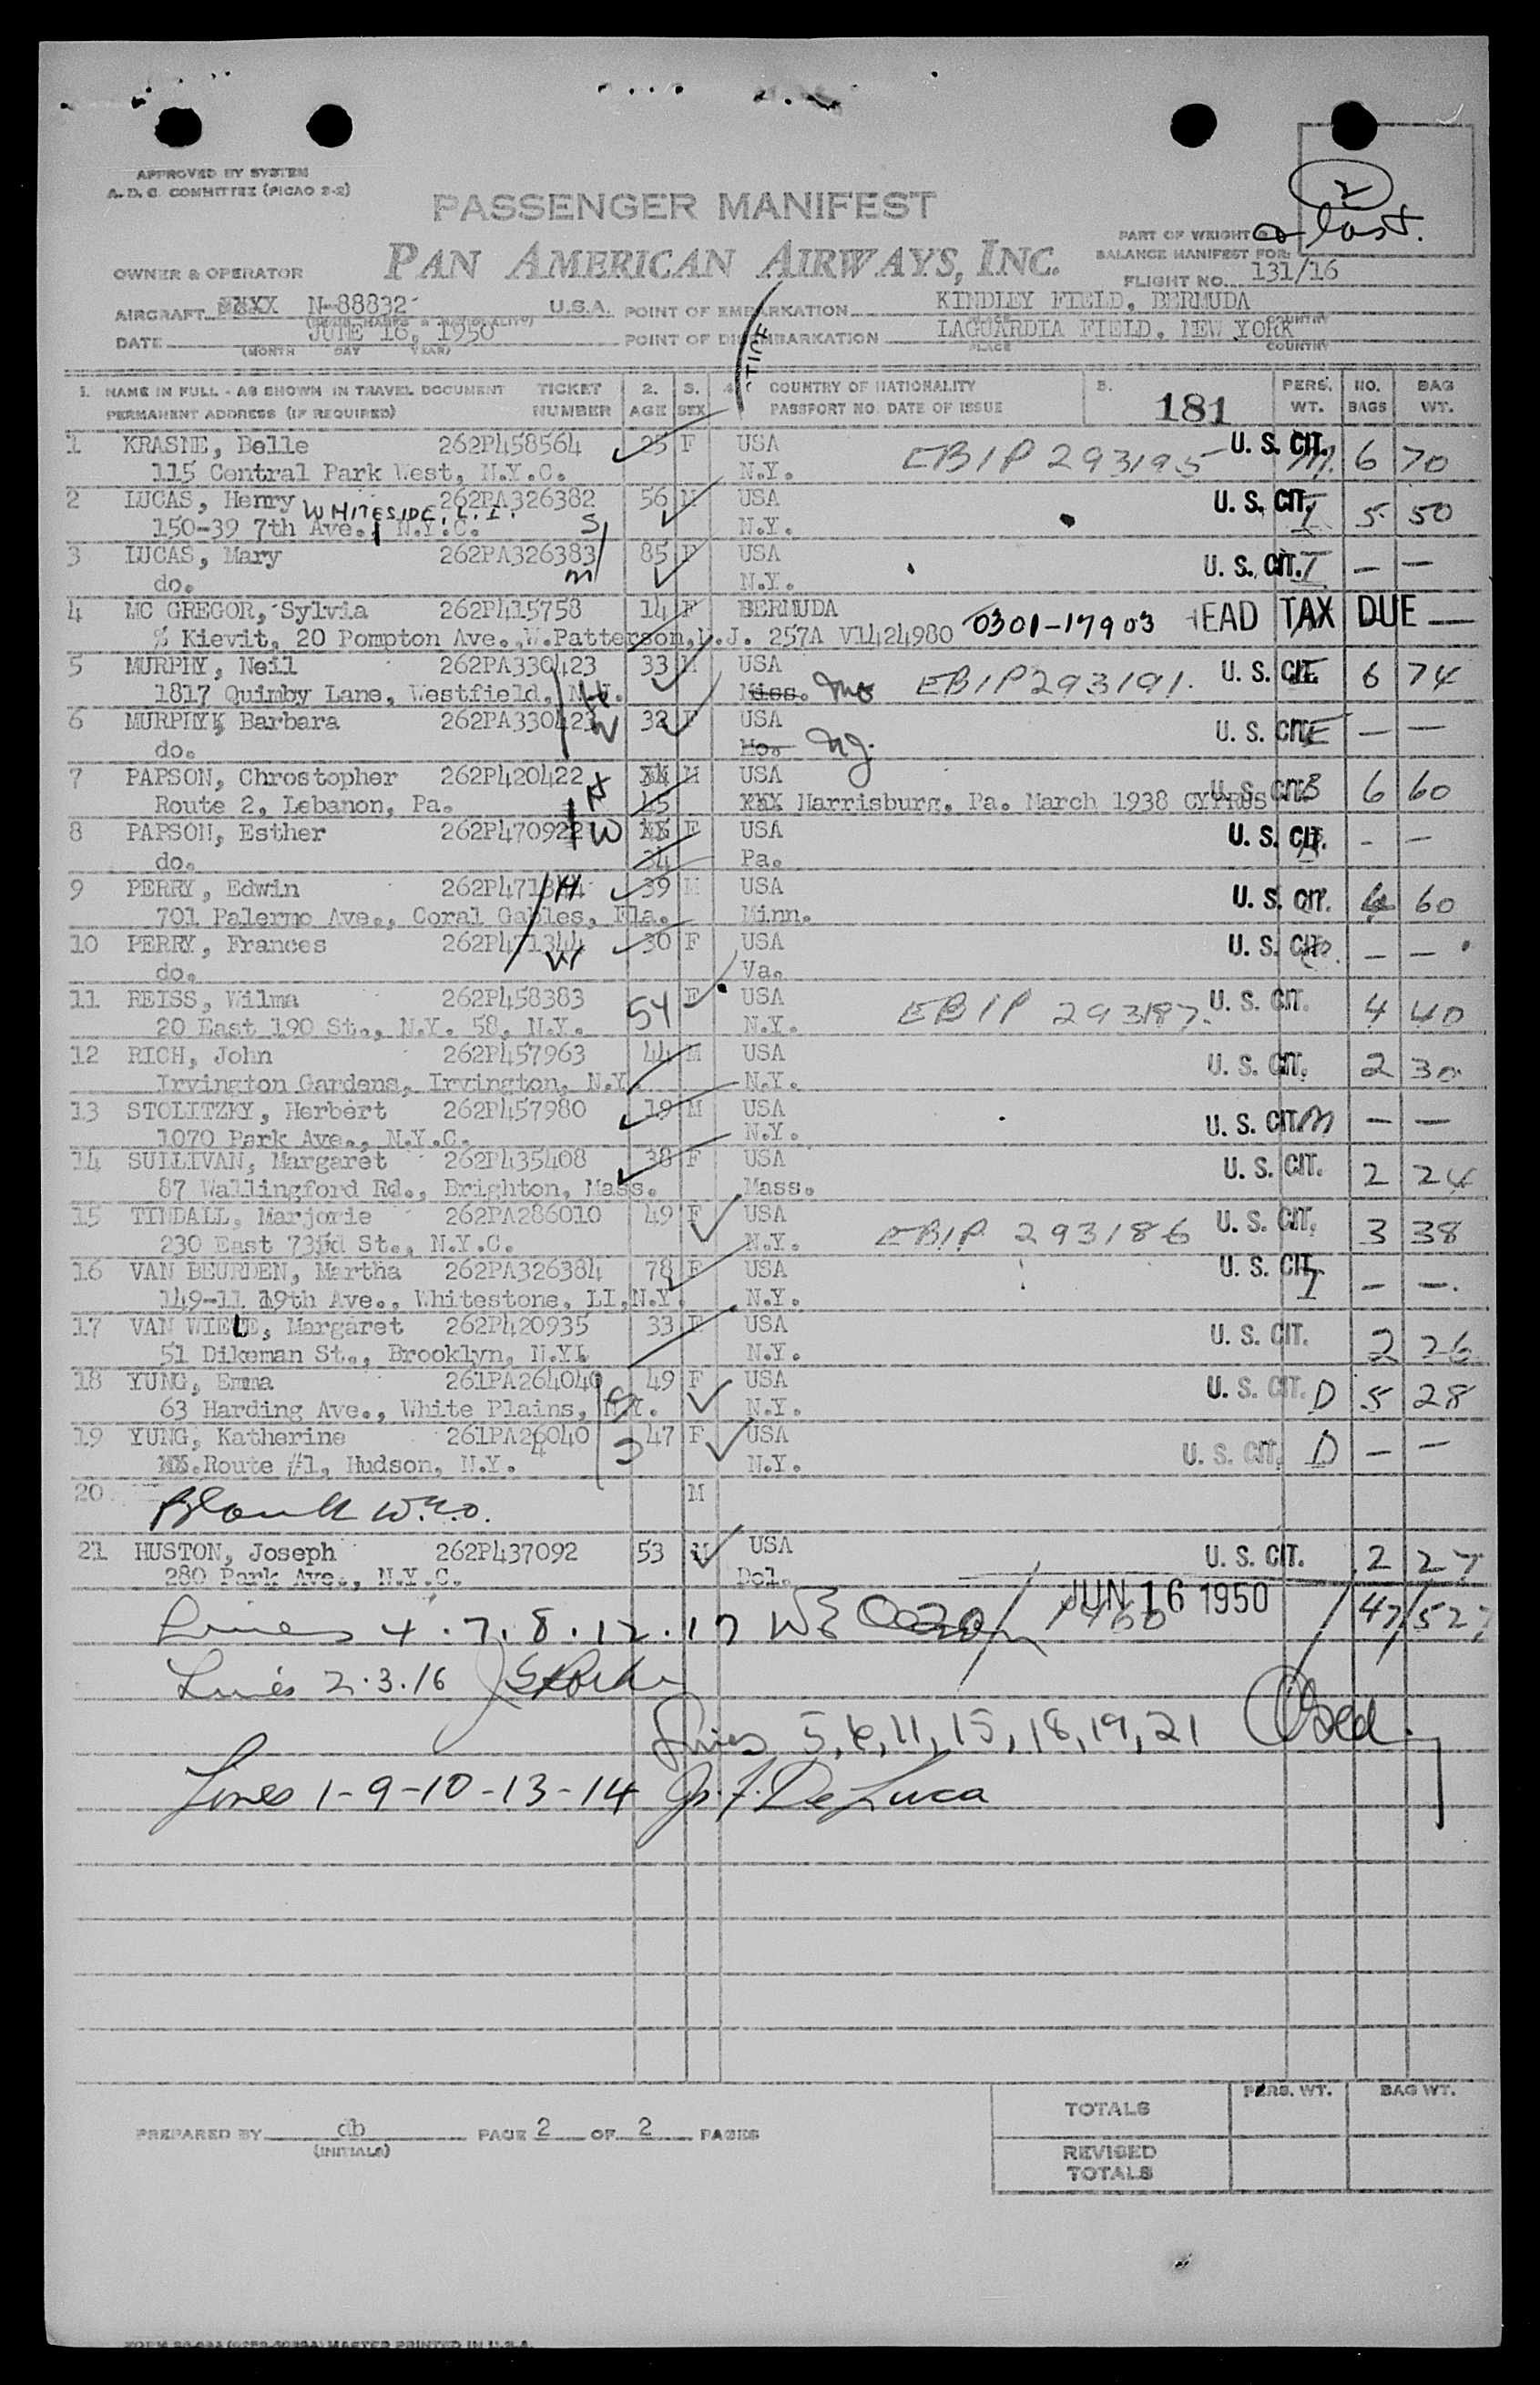 APPROVED BY SYSTEM
A. D. C. COMMITTEE (PICAO 2-2)
2
last.
PASSENGER MANIFEST
PAN AMERICAN AIRWAYS, INC.
PART OF WEIGHT &
BALANCE MANIFEST FOR:
FLIGHT NO. 131/16
OWNER & OPERATOR
AIRCRAFT N-88832 U.S.A. POINT OF EMBARKATION KINDLEY FIELD, BERMUDA
PLACE COUNTRY
DATE JUNE 16, 1950 POINT OF DISEMBARKATION LAGUARDIA FIELD, NEW YORK
(MONTH DAY YEAR) PLACE COUNTRY
1. NAME IN FULL - AS SHOWN IN TRAVEL DOCUMENT TICKET 2. 3. 4. COUNTRY OF NATIONALITY 5. PERS. NO. BAG
PERMANENT ADDRESS (IF REQUIRED) NUMBER AGE SEX PASSPORT NO. DATE OF ISSUE 181 WT. BAGS WT.
1 KRASNE, Belle 262P458564 25 F USA EBIP 293195 U. S. CIT. M. 6 70
115 Central Park West, N.Y.C. N.Y.
2 LUCAS, Henry 262PA326382 56 M USA U. S. CIT. I 5 50
WHITESIDE, L.I.
150-39 7th Ave., N.Y.C. S N.Y.
3 LUCAS, Mary 262PA326383 85 F USA U. S. CIT. I — —
do. m N.Y.
4 MC GREGOR, Sylvia 262P415758 14 F BERMUDA 0301-17903 HEAD TAX DUE —
% Kievit, 20 Pompton Ave., W.Patterson, N.J. 257A V1424980
5 MURPHY, Neil 262PA330423 33 M USA EBIP 293191. U. S. CIT. E 6 74
1817 Quimby Lane, Westfield, N.J. H Miss. Mo
6 MURPHY, Barbara 262PA330423 W 32 F USA U. S. CIT. E — —
do. Mo. NJ.
7 PAPSON, Chrostopher 262P420422 H XX M USA U. S. CIT. B 6 60
Route 2, Lebanon, Pa. 45 XXX Harrisburg, Pa. March 1938 CYPRUS
8 PAPSON, Esther 262P470922 W XX F USA U. S. CIT. - —
do. 34 Pa.
9 PERRY, Edwin H 39 M USA U. S. CIT. 4 60
701 Palermo Ave., Coral Gables, Fla. Minn.
10 PERRY, Frances 262P471344 W 30 F USA U. S. CIT. — —
do. Va.
11 REISS, Wilma 262P458383 54 F USA EBIP 293187. U. S. CIT. 4 40
20 East 190 St., N.Y. 58, N.Y. N.Y.
12 RICH, John 262P457963 44 M USA U. S. CIT. 2 30
Irvington Gardens, Irvington, N.Y. N.Y.
13 STOLITZKY, Herbert 262P457980 19 M USA U. S. CIT. M — —
1070 Park Ave., N.Y.C. N.Y.
14 SULLIVAN, Margaret 262P435408 38 F USA U. S. CIT. 2 24
87 Wallingford Rd., Brighton, Mass. Mass.
15 TINDALL, Marjorie 262PA286010 49 F USA EBIP. 293186 U. S. CIT. 3 38
230 East 73rd St., N.Y.C. N.Y.
16 VAN BEURDEN, Martha 262PA326384 78 F USA U. S. CIT. I — —.
149-11 19th Ave., Whitestone, LI,N.Y. N.Y.
17 VAN WIELE, Margaret 262P420935 33 F USA U. S. CIT. 2 26
51 Dikeman St., Brooklyn, N.Y. N.Y.
18 YUNG, Emma 261PA264040 S 49 F USA U. S. CIT. D 5 28
63 Harding Ave., White Plains, N.Y. N.Y.
19 YUNG, Katherine 261PA264040 S 47 F USA U. S. CIT. D — —
Route #1, Hudson, N.Y. N.Y.
20 Blank M
21 HUSTON, Joseph 262P437092 53 M USA U. S. CIT. 2 27
280 Park Ave., N.Y.C. Del.
Lines 4.7.8.12.17 JUN 16 1950 47/527
Lines 2.3.16
Lines 5,6,11,15,18,19,21
Lines 1-9-10-13-14 De Luca
PREPARED BY db PAGE 2 OF 2 PAGES
(INITIALS)
PERS. WT. BAG WT.
TOTALS
REVISED
TOTALS